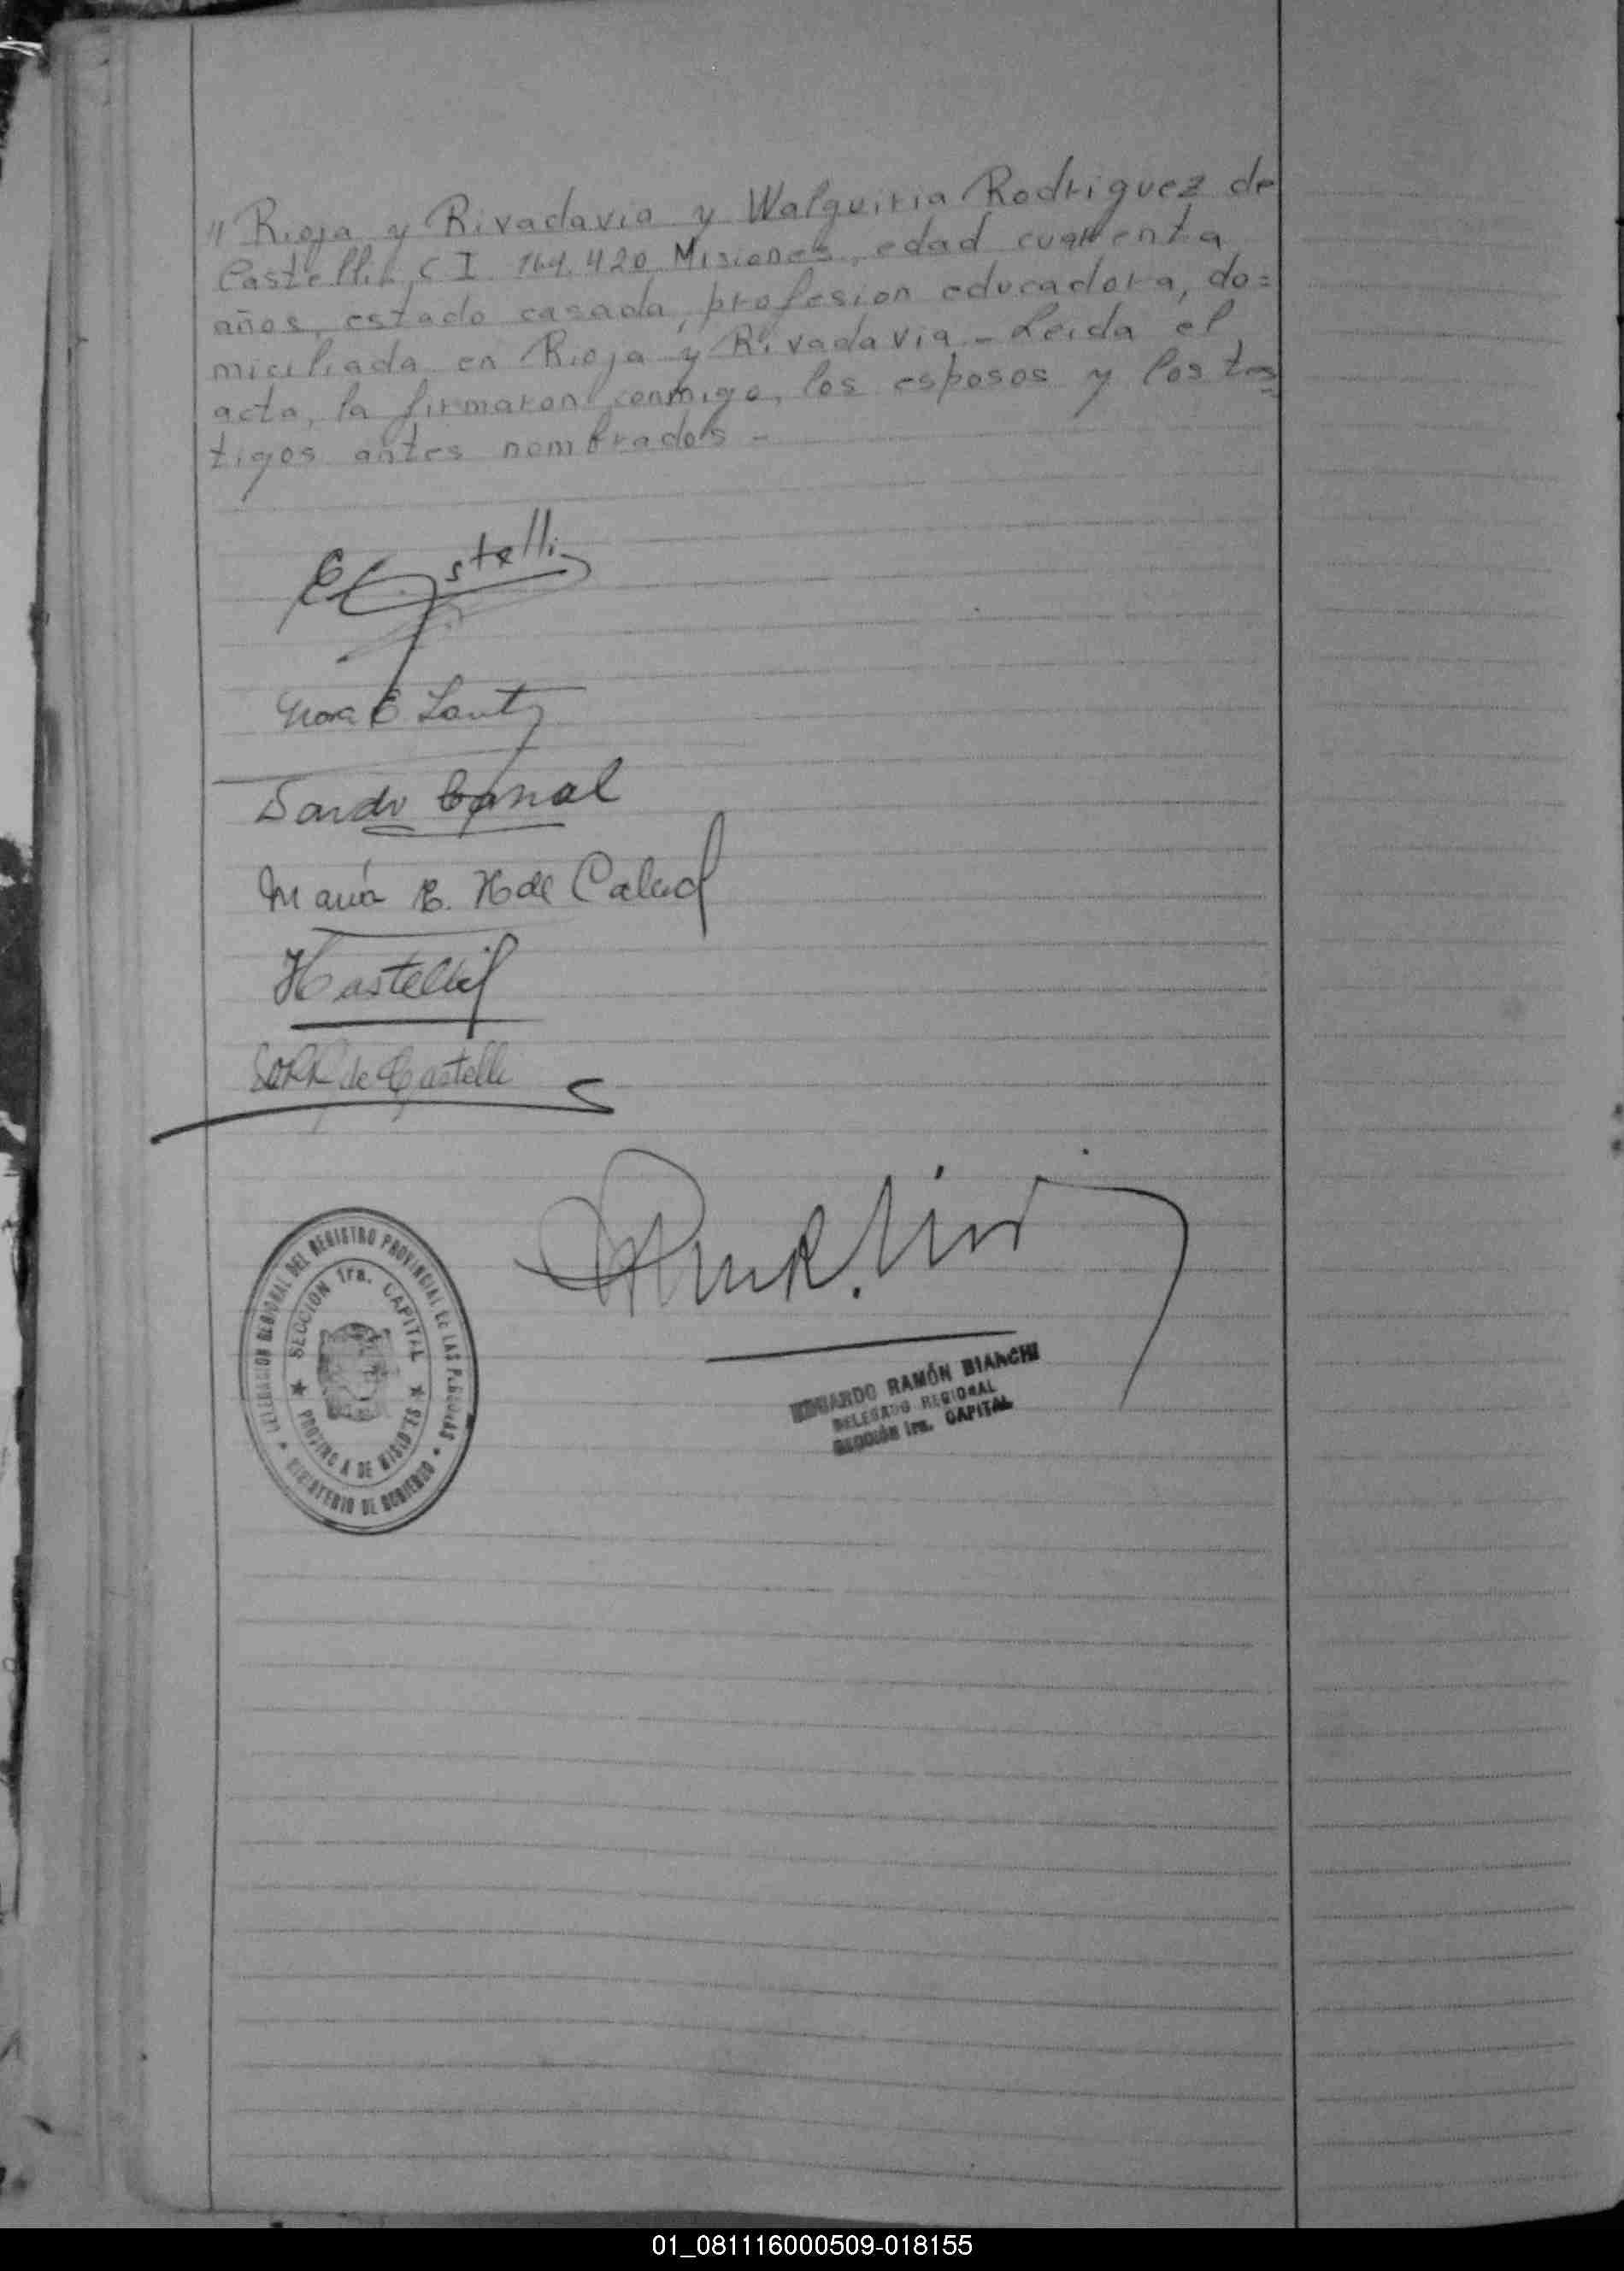 " Rioja y Rivadavia y Walquiria Rodriguez de
Castelli, C I 164.420 Misiones, edad cuarenta
años, estado casada, profesion educadora, do=
miciliada en Rioja y Rivadavia - Leida el
acta, la firmaron conmigo, los esposos y los tes=
tigos antes nombrados -
E Castelli
Nora E Lantz
María E. H de
Castelli
de Castelli
DELEGACION REGIONAL DEL REGISTRO PROVINCIAL DE LAS PERSONAS
SECCION 1ra. CAPITAL
PROVINCIA DE MISIONES
MINISTERIO DE GOBIERNO
EDUARDO RAMÓN BIANCHI
DELEGADO REGIONAL
SECCIÓN 1ra. CAPITAL
01_081116000509-018155